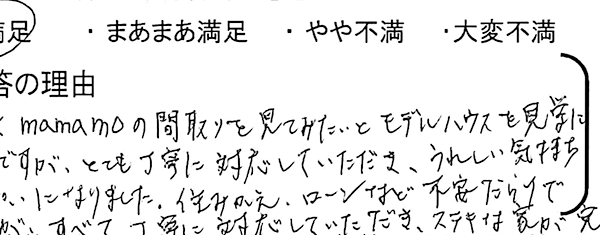 満足 ・ まあまあ満足 ・ やや不満 ・大変不満
答の理由
く mamamoの間取りを見てみたいとモデルハウスを見学に
ですが、とても丁寧に対応していただき、うれしい気持ち
いになりました。住みかえ、ローンなど不安だらけで
が、すべて丁寧に対応していただき、ステキな家が完